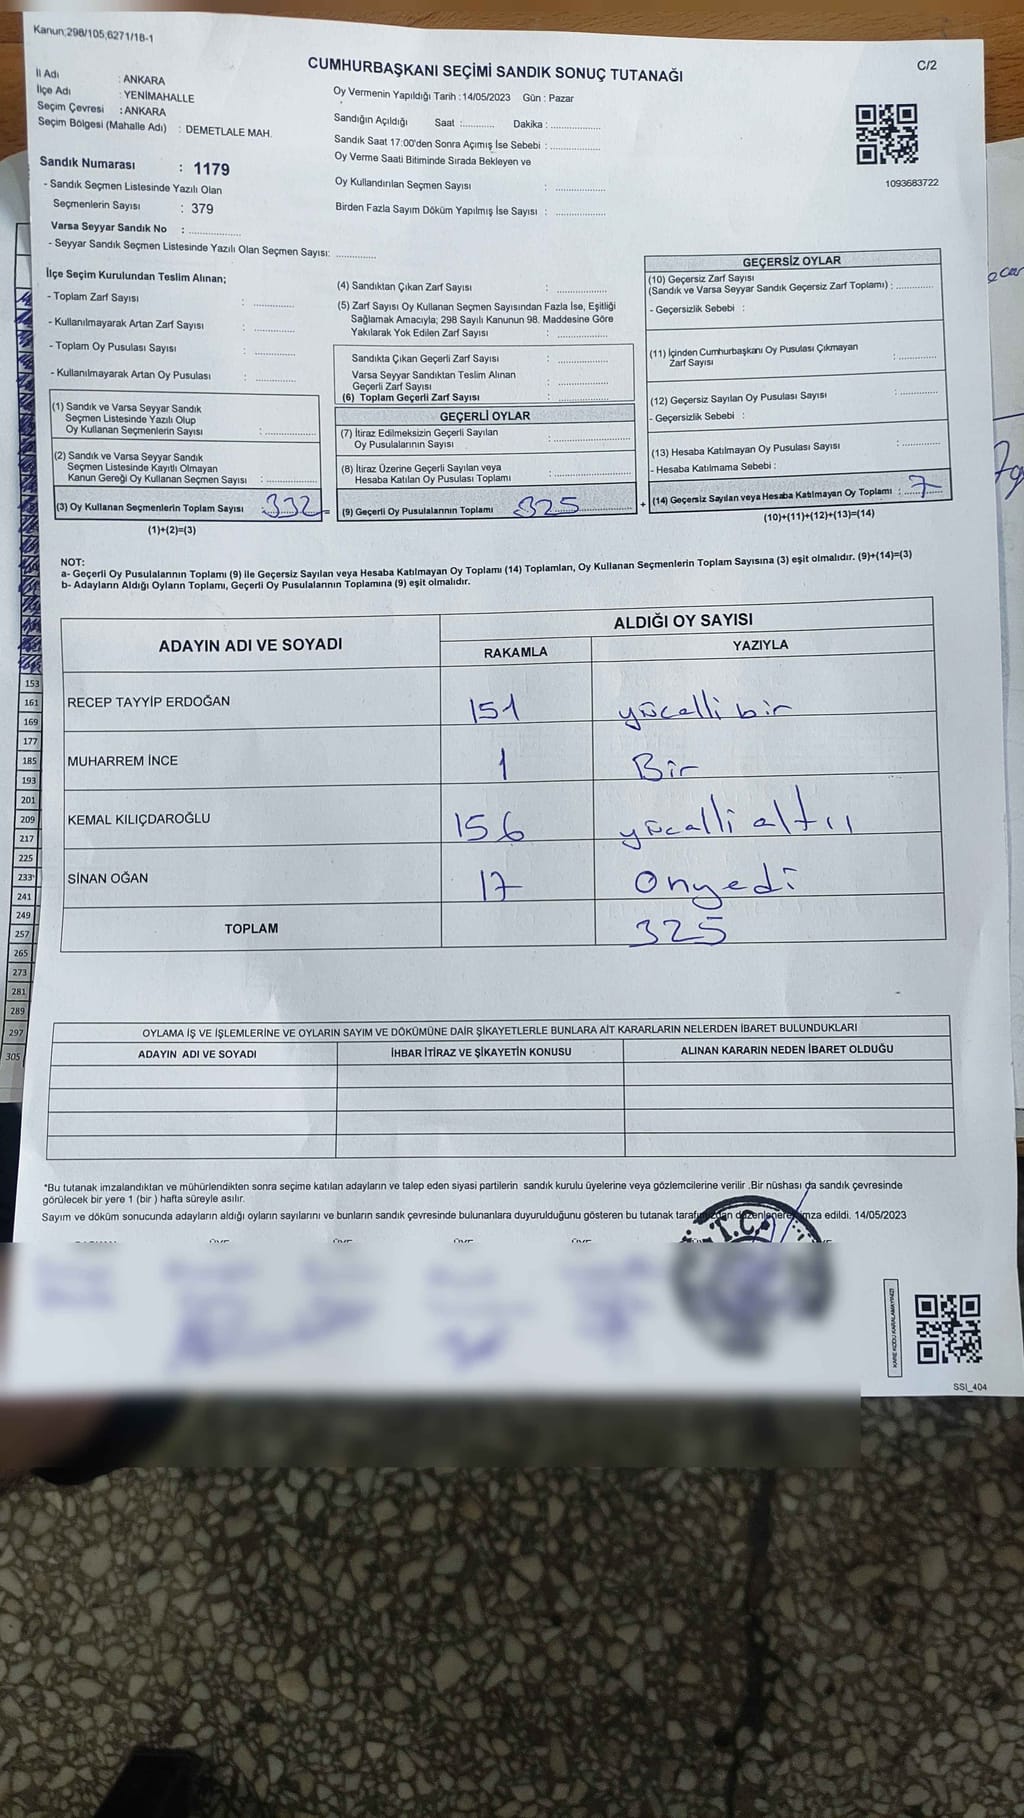 Kanun;298/105,6271/18-1
CUMHURBAŞKANI SEÇİMİ SANDIK SONUÇ TUTANAĞI
C/2
İl Adı : ANKARA
İlçe Adı : YENİMAHALLE
Seçim Çevresi : ANKARA
Seçim Bölgesi (Mahalle Adı) : DEMETLALE MAH.
Oy Vermenin Yapıldığı Tarih :14/05/2023 Gün : Pazar
Sandığın Açıldığı Saat :........... Dakika : ..................
Sandık Saat 17:00'den Sonra Açımış İse Sebebi : ..................
Oy Verme Saati Bitiminde Sırada Bekleyen ve
Oy Kullandırılan Seçmen Sayısı : ..................
Birden Fazla Sayım Döküm Yapılmış İse Sayısı : ..................
1093683722
Sandık Numarası : 1179
- Sandık Seçmen Listesinde Yazılı Olan
Seçmenlerin Sayısı : 379
Varsa Seyyar Sandık No : ..................
- Seyyar Sandık Seçmen Listesinde Yazılı Olan Seçmen Sayısı: ..............
İlçe Seçim Kurulundan Teslim Alınan;
- Toplam Zarf Sayısı : ..............
- Kullanılmayarak Artan Zarf Sayısı : ..............
- Toplam Oy Pusulası Sayısı : ..............
- Kullanılmayarak Artan Oy Pusulası : ..............
(1) Sandık ve Varsa Seyyar Sandık
Seçmen Listesinde Yazılı Olup
Oy Kullanan Seçmenlerin Sayısı : ..................
(2) Sandık ve Varsa Seyyar Sandık
Seçmen Listesinde Kayıtlı Olmayan
Kanun Gereği Oy Kullanan Seçmen Sayısı : ..................
(3) Oy Kullanan Seçmenlerin Toplam Sayısı 332 =
(1)+(2)=(3)
(4) Sandıktan Çıkan Zarf Sayısı : ..................
(5) Zarf Sayısı Oy Kullanan Seçmen Sayısından Fazla İse, Eşitliği
Sağlamak Amacıyla; 298 Sayılı Kanunun 98. Maddesine Göre
Yakılarak Yok Edilen Zarf Sayısı : ..................
Sandıkta Çıkan Geçerli Zarf Sayısı : ..................
Varsa Seyyar Sandıktan Teslim Alınan
Geçerli Zarf Sayısı : ..................
(6) Toplam Geçerli Zarf Sayısı : ..................
GEÇERLİ OYLAR
(7) İtiraz Edilmeksizin Geçerli Sayılan
Oy Pusulalarının Sayısı : ..................
(8) İtiraz Üzerine Geçerli Sayılan veya
Hesaba Katılan Oy Pusulası Toplamı : ..................
(9) Geçerli Oy Pusulalarının Toplamı 325 +
GEÇERSİZ OYLAR
(10) Geçersiz Zarf Sayısı
(Sandık ve Varsa Seyyar Sandık Geçersiz Zarf Toplamı) : ............
- Geçersizlik Sebebi :
(11) İçinden Cumhurbaşkanı Oy Pusulası Çıkmayan
Zarf Sayısı : ............
(12) Geçersiz Sayılan Oy Pusulası Sayısı : ............
- Geçersizlik Sebebi :
(13) Hesaba Katılmayan Oy Pusulası Sayısı : ............
- Hesaba Katılmama Sebebi :
(14) Geçersiz Sayılan veya Hesaba Katılmayan Oy Toplamı : 7
(10)+(11)+(12)+(13)=(14)
NOT:
a- Geçerli Oy Pusulalarının Toplamı (9) ile Geçersiz Sayılan veya Hesaba Katılmayan Oy Toplamı (14) Toplamları, Oy Kullanan Seçmenlerin Toplam Sayısına (3) eşit olmalıdır. (9)+(14)=(3)
b- Adayların Aldığı Oyların Toplamı, Geçerli Oy Pusulalarının Toplamına (9) eşit olmalıdır.
ADAYIN ADI VE SOYADI
ALDIĞI OY SAYISI
RAKAMLA YAZIYLA
RECEP TAYYİP ERDOĞAN 151 yücelli bir
MUHARREM İNCE 1 Bir
KEMAL KILIÇDAROĞLU 156 yücelli altıı
SİNAN OĞAN 17 Onyedi
TOPLAM 325
153
161
169
177
185
193
201
209
217
225
233
241
249
257
265
273
281
289
297
305
OYLAMA İŞ VE İŞLEMLERİNE VE OYLARIN SAYIM VE DÖKÜMÜNE DAİR ŞİKAYETLERLE BUNLARA AİT KARARLARIN NELERDEN İBARET BULUNDUKLARI
ADAYIN ADI VE SOYADI İHBAR İTİRAZ VE ŞİKAYETİN KONUSU ALINAN KARARIN NEDEN İBARET OLDUĞU
*Bu tutanak imzalandıktan ve mühürlendikten sonra seçime katılan adayların ve talep eden siyasi partilerin sandık kurulu üyelerine veya gözlemcilerine verilir .Bir nüshası da sandık çevresinde
görülecek bir yere 1 (bir ) hafta süreyle asılır.
Sayım ve döküm sonucunda adayların aldığı oyların sayılarını ve bunların sandık çevresinde bulunanlara duyurulduğunu gösteren bu tutanak tarafımızdan düzenlenerek imza edildi. 14/05/2023
T.C.
KARE KODU KARALAMAYINIZ!
SSI_404